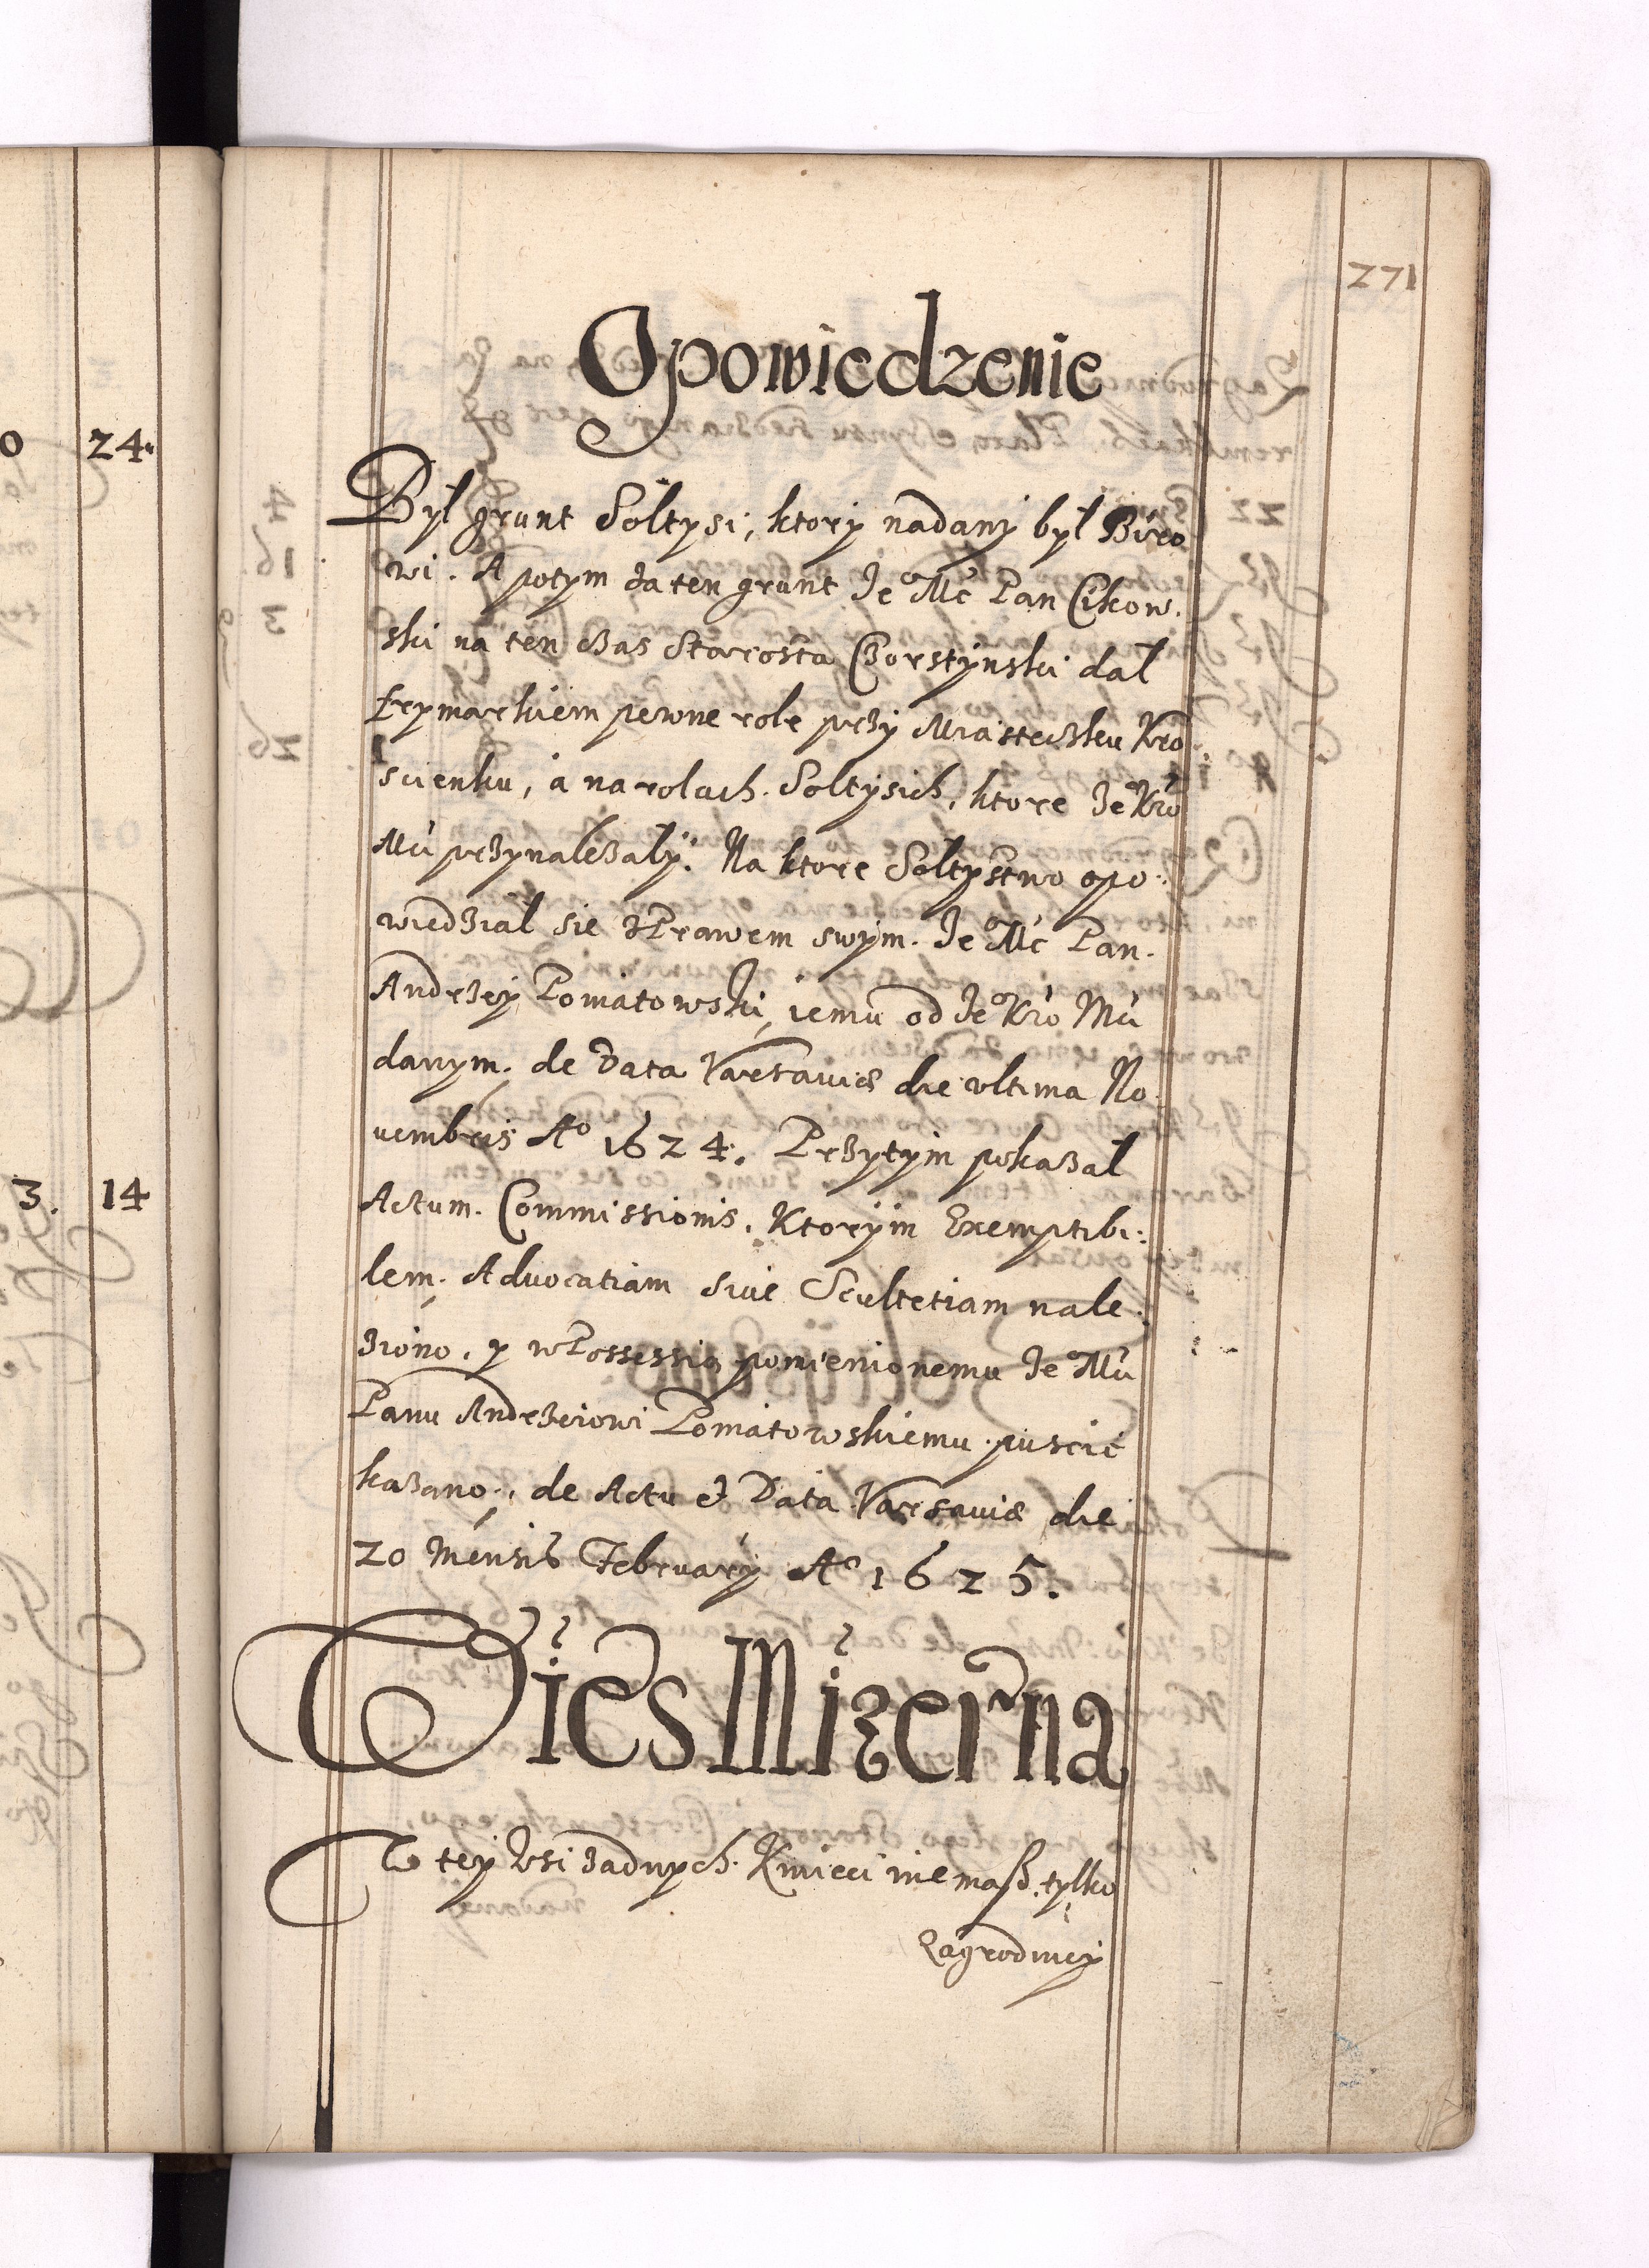 271
Opowiedzenie
Był grunt Sołtysi, ktory nadany był Biro
wi. A potym za ten grunt Je° Mć Pan Cikow.
ski na ten czas Starosta Czorstynski dał
frymarkiem pewne role przy Miasteczku Kro
scienku, a na rolach Soltysich, ktore Je° Kró
Mći przynależały. Na ktore Sołtystwo opo:
wiedział sie z Prawem swym. Je° Mć Pan.
Andrzey Poniatowski, iemu od Je° Kró Mći
danym. de Data Varsaviæ die vltima No
uembris A° 1624. Przytym pokazał
Actum. Commissionis. Ktorym Exemptibi:
lem. Aduocatiam siue Scultetiam nale:
ziono. y w Possessią pomienionemu Je° Mći
Panu Andrzeiowi Poniatowskiemu puscić
kazano, de Actu et Data Varsauiæ die
20 Mensis February A° 1625.
Wies Mizerna
W tey Wsi żadnych Kmieci niemasz. tylko
Zagrodnicy
0 24.
3. 14